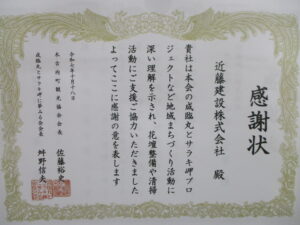 感謝状
近藤建設株式会社 殿
貴社は本会の咸臨丸とサラキ岬プロ
ジェクトなど地域まちづくり活動に
深い理解を示され、花壇整備や清掃
活動にご支援ご協力いただきました
よってここに感謝の意を表します
令和七年十月十八日
木古内町観光協会会長
佐藤裕史
咸臨丸とサラキ岬に夢みる会会長
舛野信夫